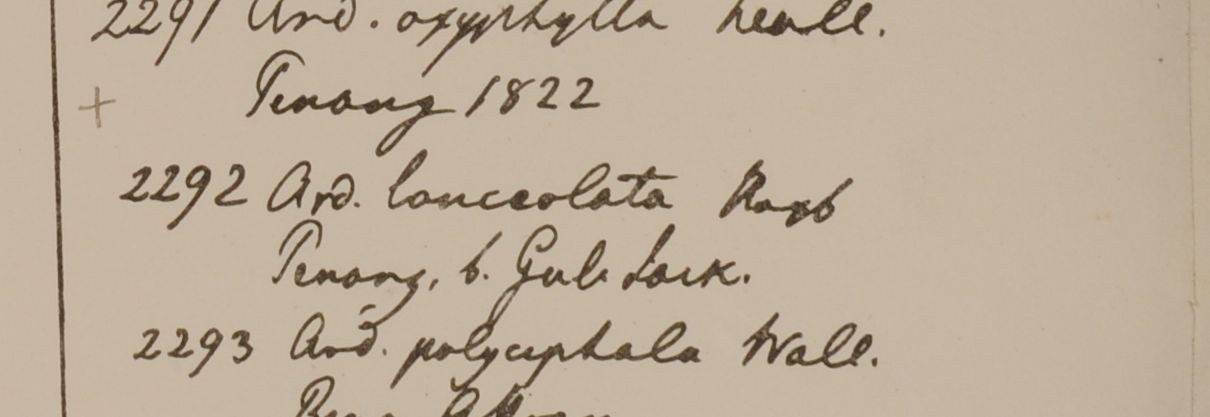 2291 Ard. oxyphylla Wall.
+ Penang 1822
2292 Ard. lanceolata Roxb
Penang, b. Geo. Jack.
2293 Ard. polycephala Wall.